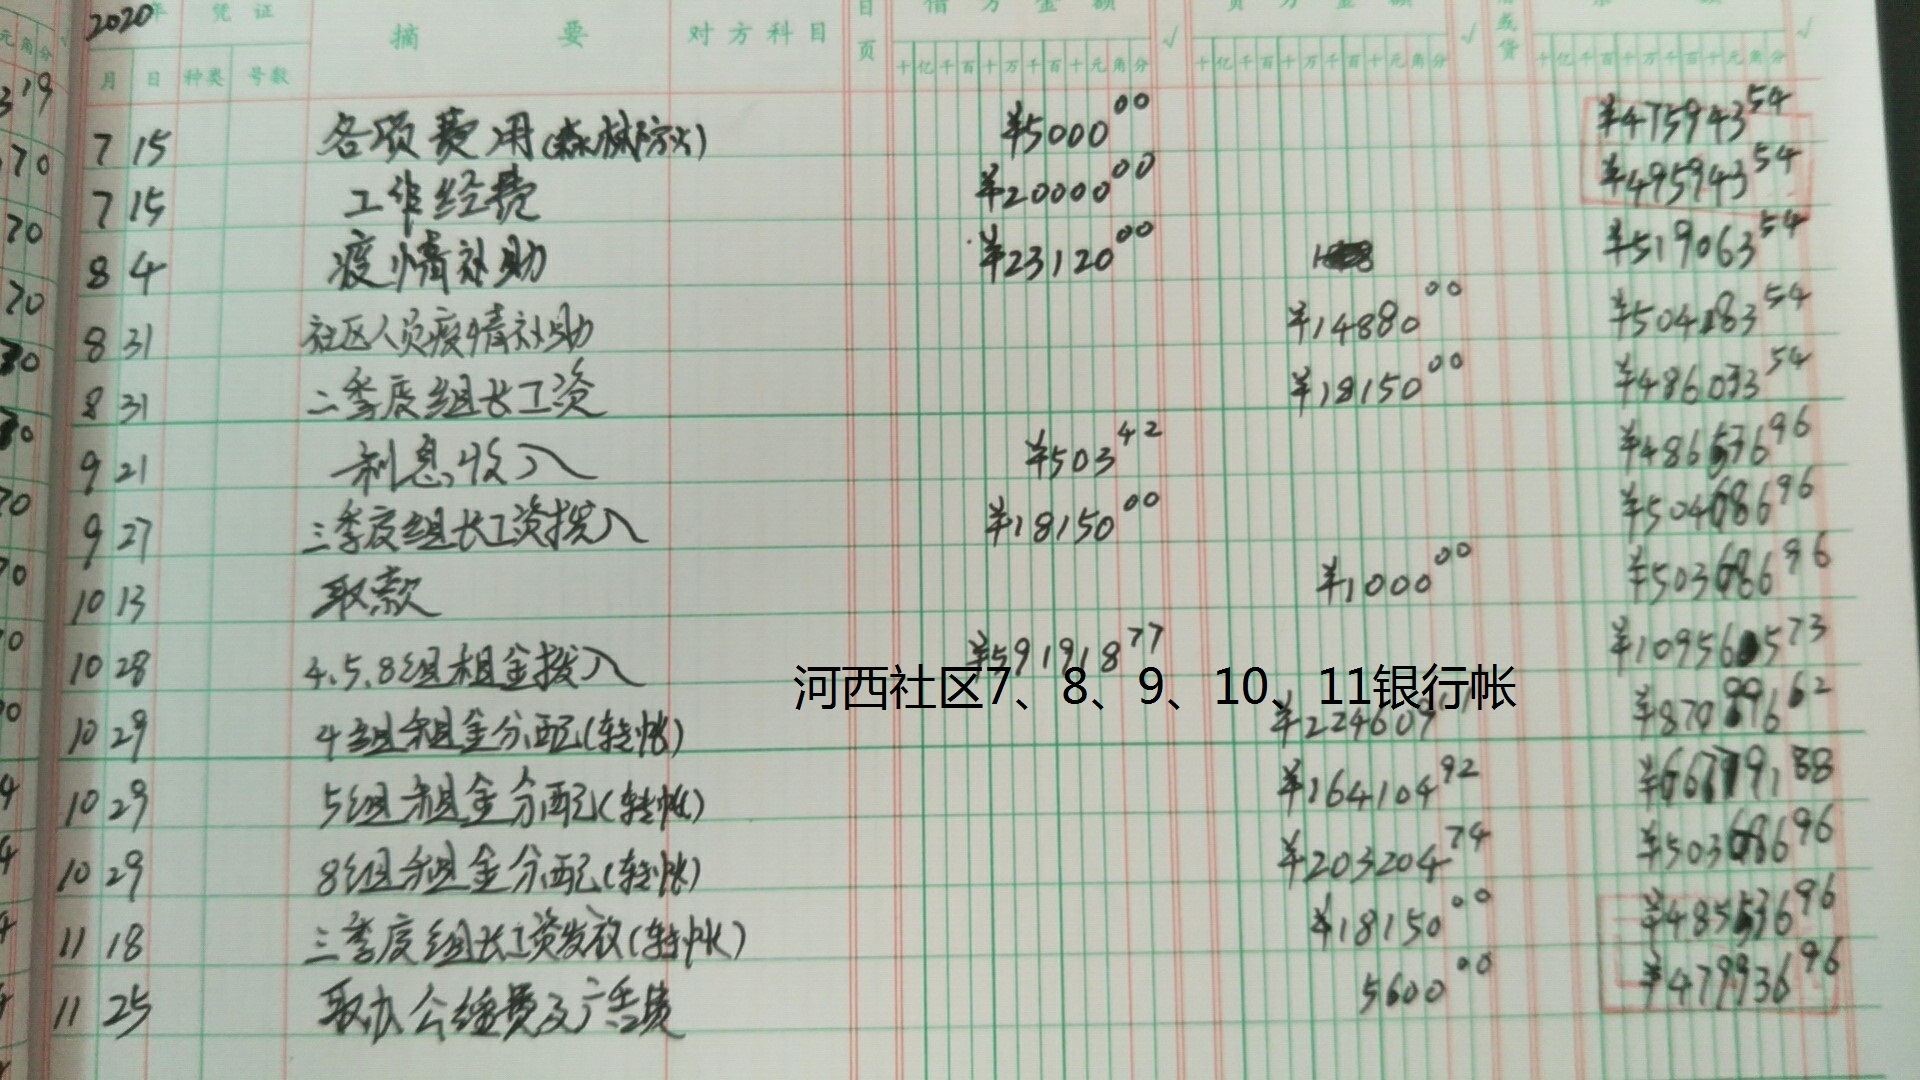 2020年 凭证 摘要 对方科目 日页 借方金额 √ 贷方金额 √ 借或贷 余额 √
月 日 种类 号数 十亿千百十万千百十元角分 十亿千百十万千百十元角分 十亿千百十万千百十元角分
7 15 各项费用(森林防火) ¥5000 00 ¥475943 54
7 15 工作经费 ¥20000 00 ¥495943 54
8 4 疫情补助 ¥23120 00 ¥519063 54
8 31 社区人员疫情补助 ¥14880 00 ¥504183 54
8 31 二季度组长工资 ¥18150 00 ¥486033 54
9 21 利息收入 ¥503 42 ¥486536 96
9 27 三季度组长工资拨入 ¥18150 00 ¥504686 96
10 13 取款 ¥1000 00 ¥503686 96
10 28 4.5.8组租金拨入 ¥591918 77 ¥1095605 73
河西社区7、8、9、10、11银行帐
10 29 4组租金分配(转帐) ¥224609 ¥870996 62
10 29 5组租金分配(转帐) ¥164104 92
10 29 8组租金分配(转帐) ¥203204 74 ¥503686 96
11 18 三季度组长工资发放(转帐) ¥18150 00 ¥485536 96
11 25 取办公经费及广告费 5600 00 ¥479936 96